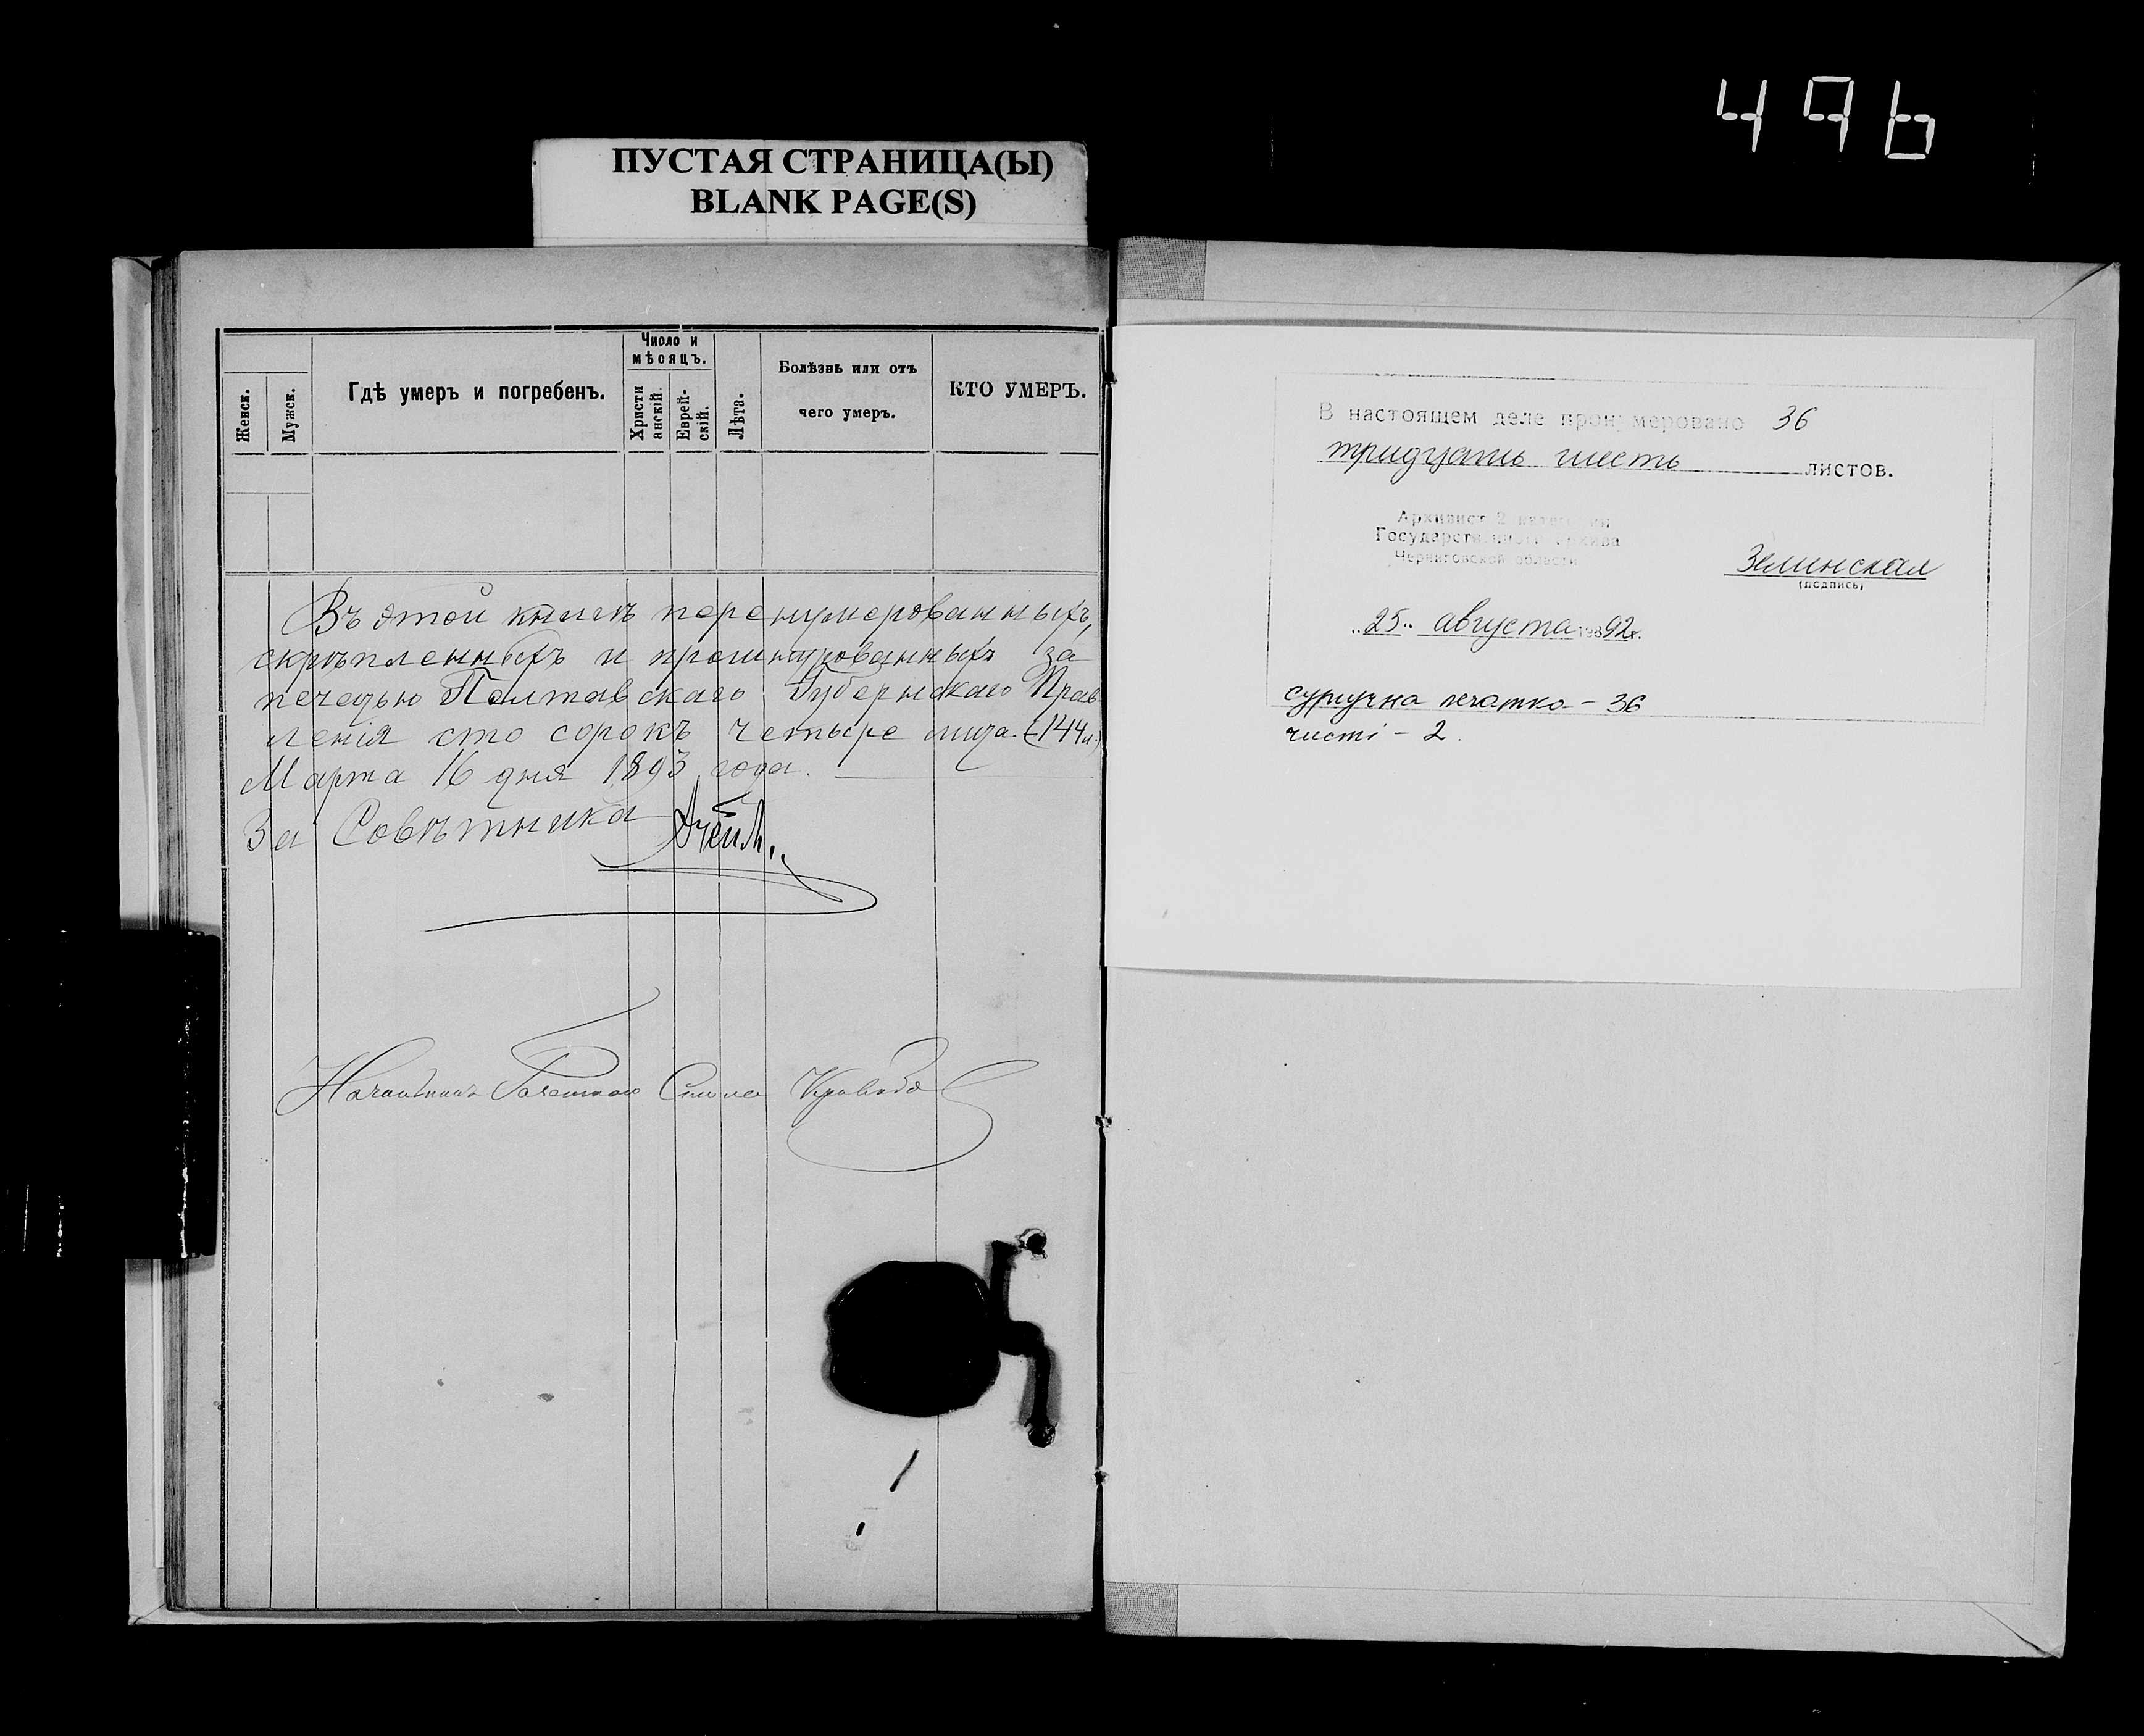 496
ПУСТАЯ СТРАНИЦА(Ы)
BLANK PAGE(S)
Женск.
Мужск.
Гдѣ умеръ и погребенъ.
Число и
мѣсяцъ.
Христи
анскій.
Еврей-
скій.
Лѣта.
Болѣзнь или отъ
чего умеръ.
КТО УМЕРЪ.
Въ этой книгѣ перенумерованныхъ,
скрѣпленныхъ и прошнурованныхъ за
печатью Полтавскаго Губернскаго Прав
ленія сто сорокъ четыре листа (144 л.)
Марта 16 дня 1893 года.
За Совѣтника
В настоящем деле пронумеровано 36
тридцать шесть листов.
Архивист 2 категории
Государственного архива
Черниговской области
Зелинская
(подпись)
"25" августа 19892г.
сургучна печатка - 36
чисті - 2.